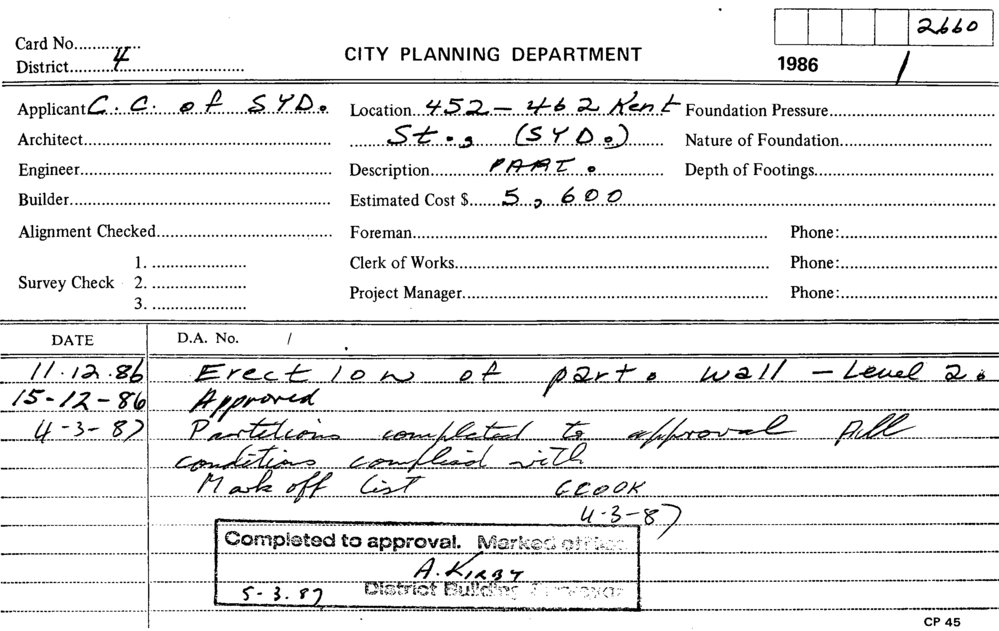 2660
Card No.
CITY PLANNING DEPARTMENT
1986 /
District 4
Applicant C. C. of SYD. Location 452 - 462 Kent Foundation Pressure
Architect St., (SYD.) Nature of Foundation
Engineer Description PART. Depth of Footings
Builder Estimated Cost $ 5,600
Alignment Checked Foreman Phone:
1. Clerk of Works Phone:
Survey Check 2.
Project Manager Phone:
3.
DATE D.A. No. /
11.12.86 Erection of part. wall - Level 2.
15-12-86 Approved
4-3-87 Partitions completed to approval All
conditions complied with
Mark off list G COOK
4-3-87
Completed to approval. Marked off list.
A. KIRBY
5-3.87 District Building Surveyor
CP 45